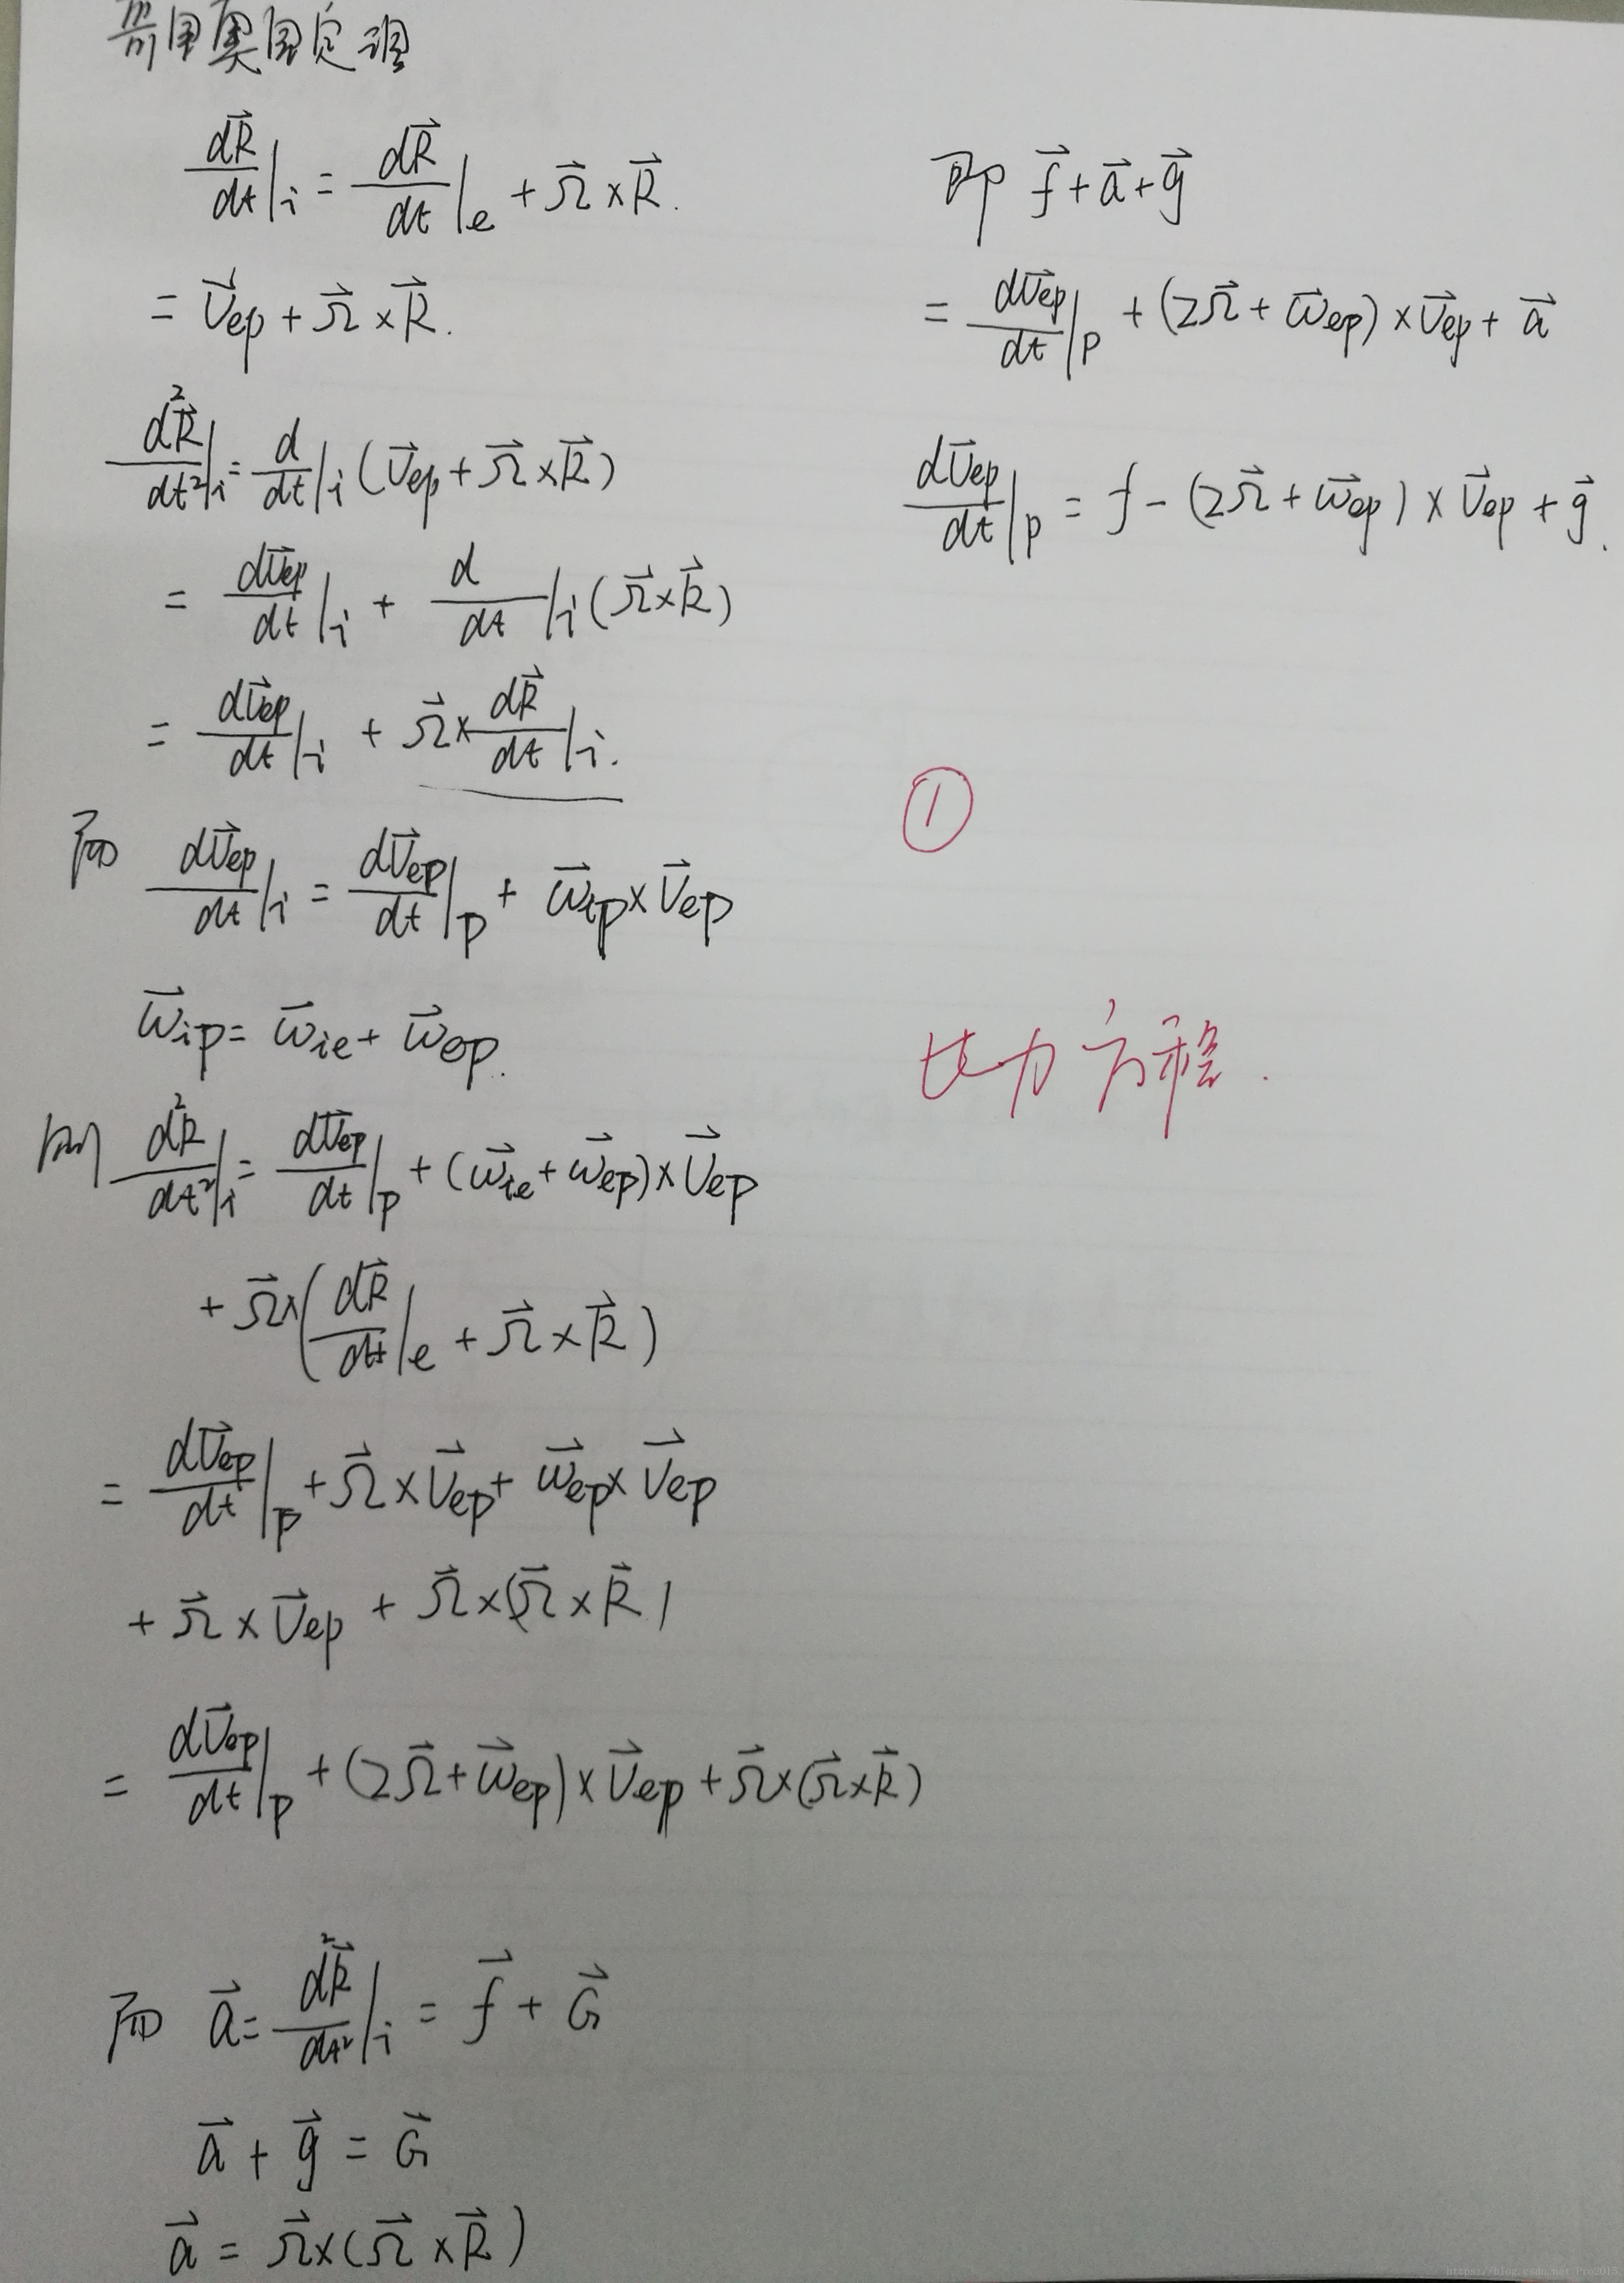 哥里奥利定理
dR⃗/dt|i = dR⃗/dt|e + Ω⃗ × R⃗.
= V⃗ep + Ω⃗ × R⃗.
d²R⃗/dt²|i = d/dt|i (V⃗ep + Ω⃗ × R⃗)
= dV⃗ep/dt|i + d/dt|i (Ω⃗ × R⃗)
= dV⃗ep/dt|i + Ω⃗ × dR⃗/dt|i.
而 dV⃗ep/dt|i = dV⃗ep/dt|p + ω⃗ip × V⃗ep
ω⃗ip = ω⃗ie + ω⃗ep.
则 d²R⃗/dt²|i = dV⃗ep/dt|p + (ω⃗ie + ω⃗ep) × V⃗ep
+ Ω⃗ × (dR⃗/dt|e + Ω⃗ × R⃗)
= dV⃗ep/dt|p + Ω⃗ × V⃗ep + ω⃗ep × V⃗ep
+ Ω⃗ × V⃗ep + Ω⃗ × (Ω⃗ × R⃗)
= dV⃗ep/dt|p + (2Ω⃗ + ω⃗ep) × V⃗ep + Ω⃗ × (Ω⃗ × R⃗)
而 a⃗ = d²R⃗/dt²|i = f⃗ + G⃗
a⃗ + g⃗ = G⃗
a⃗ = Ω⃗ × (Ω⃗ × R⃗)
即 f⃗ + a⃗ + g⃗
= dV⃗ep/dt|p + (2Ω⃗ + ω⃗ep) × V⃗ep + a⃗
dV⃗ep/dt|p = f - (2Ω⃗ + ω⃗ep) × V⃗ep + g⃗.
①
比力方程.